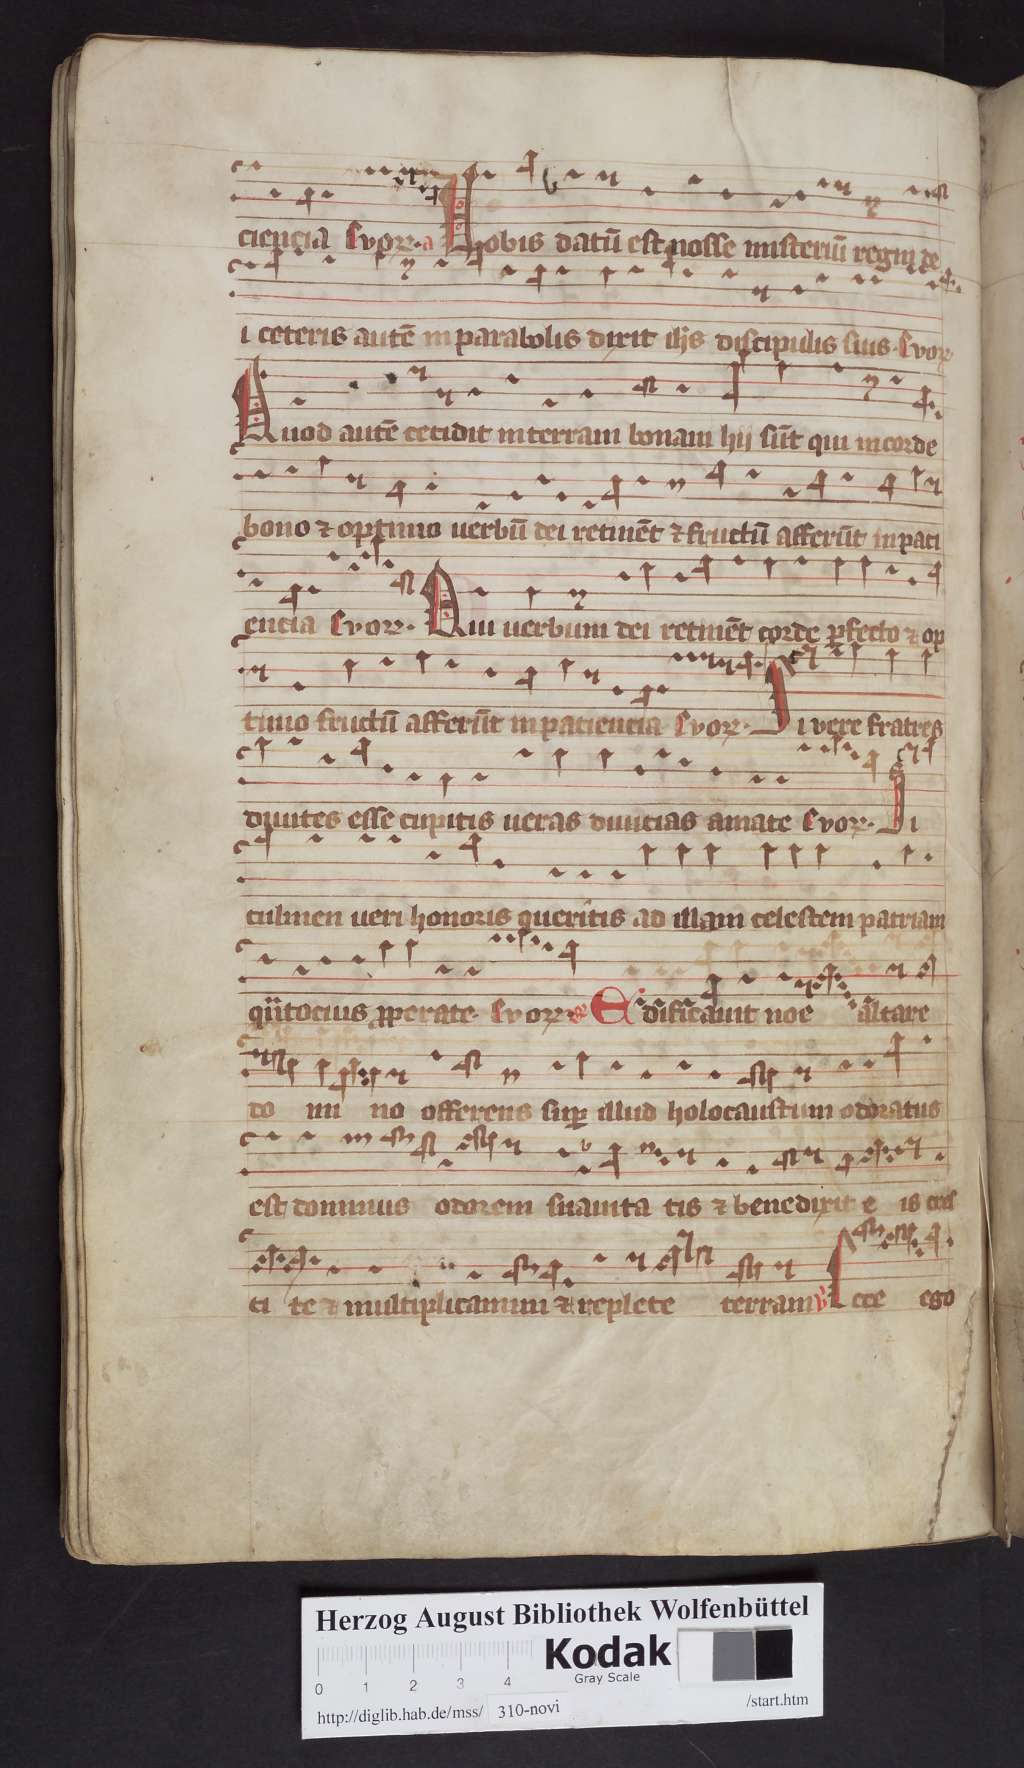 ciencia Evoꝝ. a Vobis datū est nosse misteriū regni de
i ceteris autē in parabolis dixit ihs discipulis suis. Evoꝝ
Quod autē cecidit in terram bonam hii sūt qui in corde
bono ⁊ optimo uerbū dei retinēt ⁊ fructū afferūt in paci
encia Evoꝝ. Qui uerbum dei retinēt corde ꝑfecto ⁊ op
timo fructū afferūt in paciencia Evoꝝ. Si vere fratres
diuites esse cupitis ueras diuicias amate Evoꝝ. Si
culmen ueri honoris queritis ad illam celestem patriam
qͣntocius ꝓperate. Evoꝝ R Edificauit noe altare
do mi no offerens suꝑ illud holocaustum odoratus
est dominus odorem suauita tis ⁊ benedixit e is cres
ci te ⁊ multiplicamini ⁊ replete terram V Ecce ego
Herzog August Bibliothek Wolfenbüttel
Kodak
Gray Scale
0 1 2 3 4
http://diglib.hab.de/mss/ 310-novi /start.htm